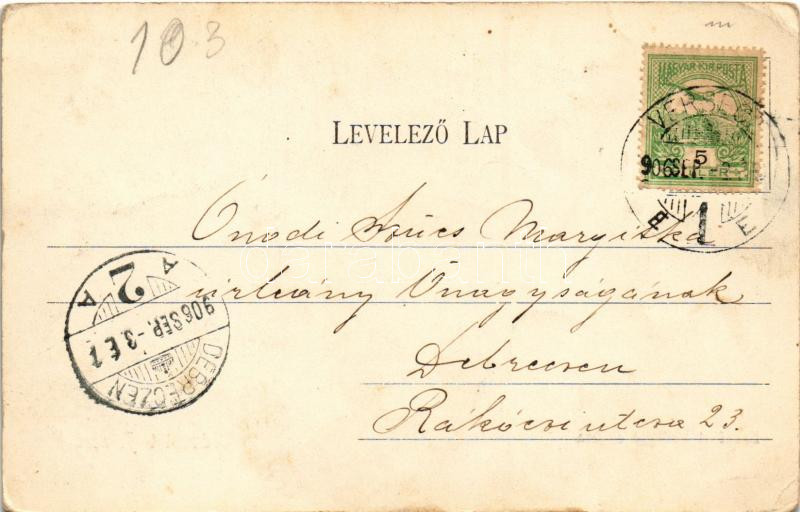 103
MAGYAR KIR. POSTA
5
906 SEP.
1
LEVELEZŐ LAP
Ónodi Szűcs Margitka
úrleány Őnagyságának
Debreczen
Rákóczi utcza 23.
A 2 A
906 SEP. -3. E 7
DEBRECZEN